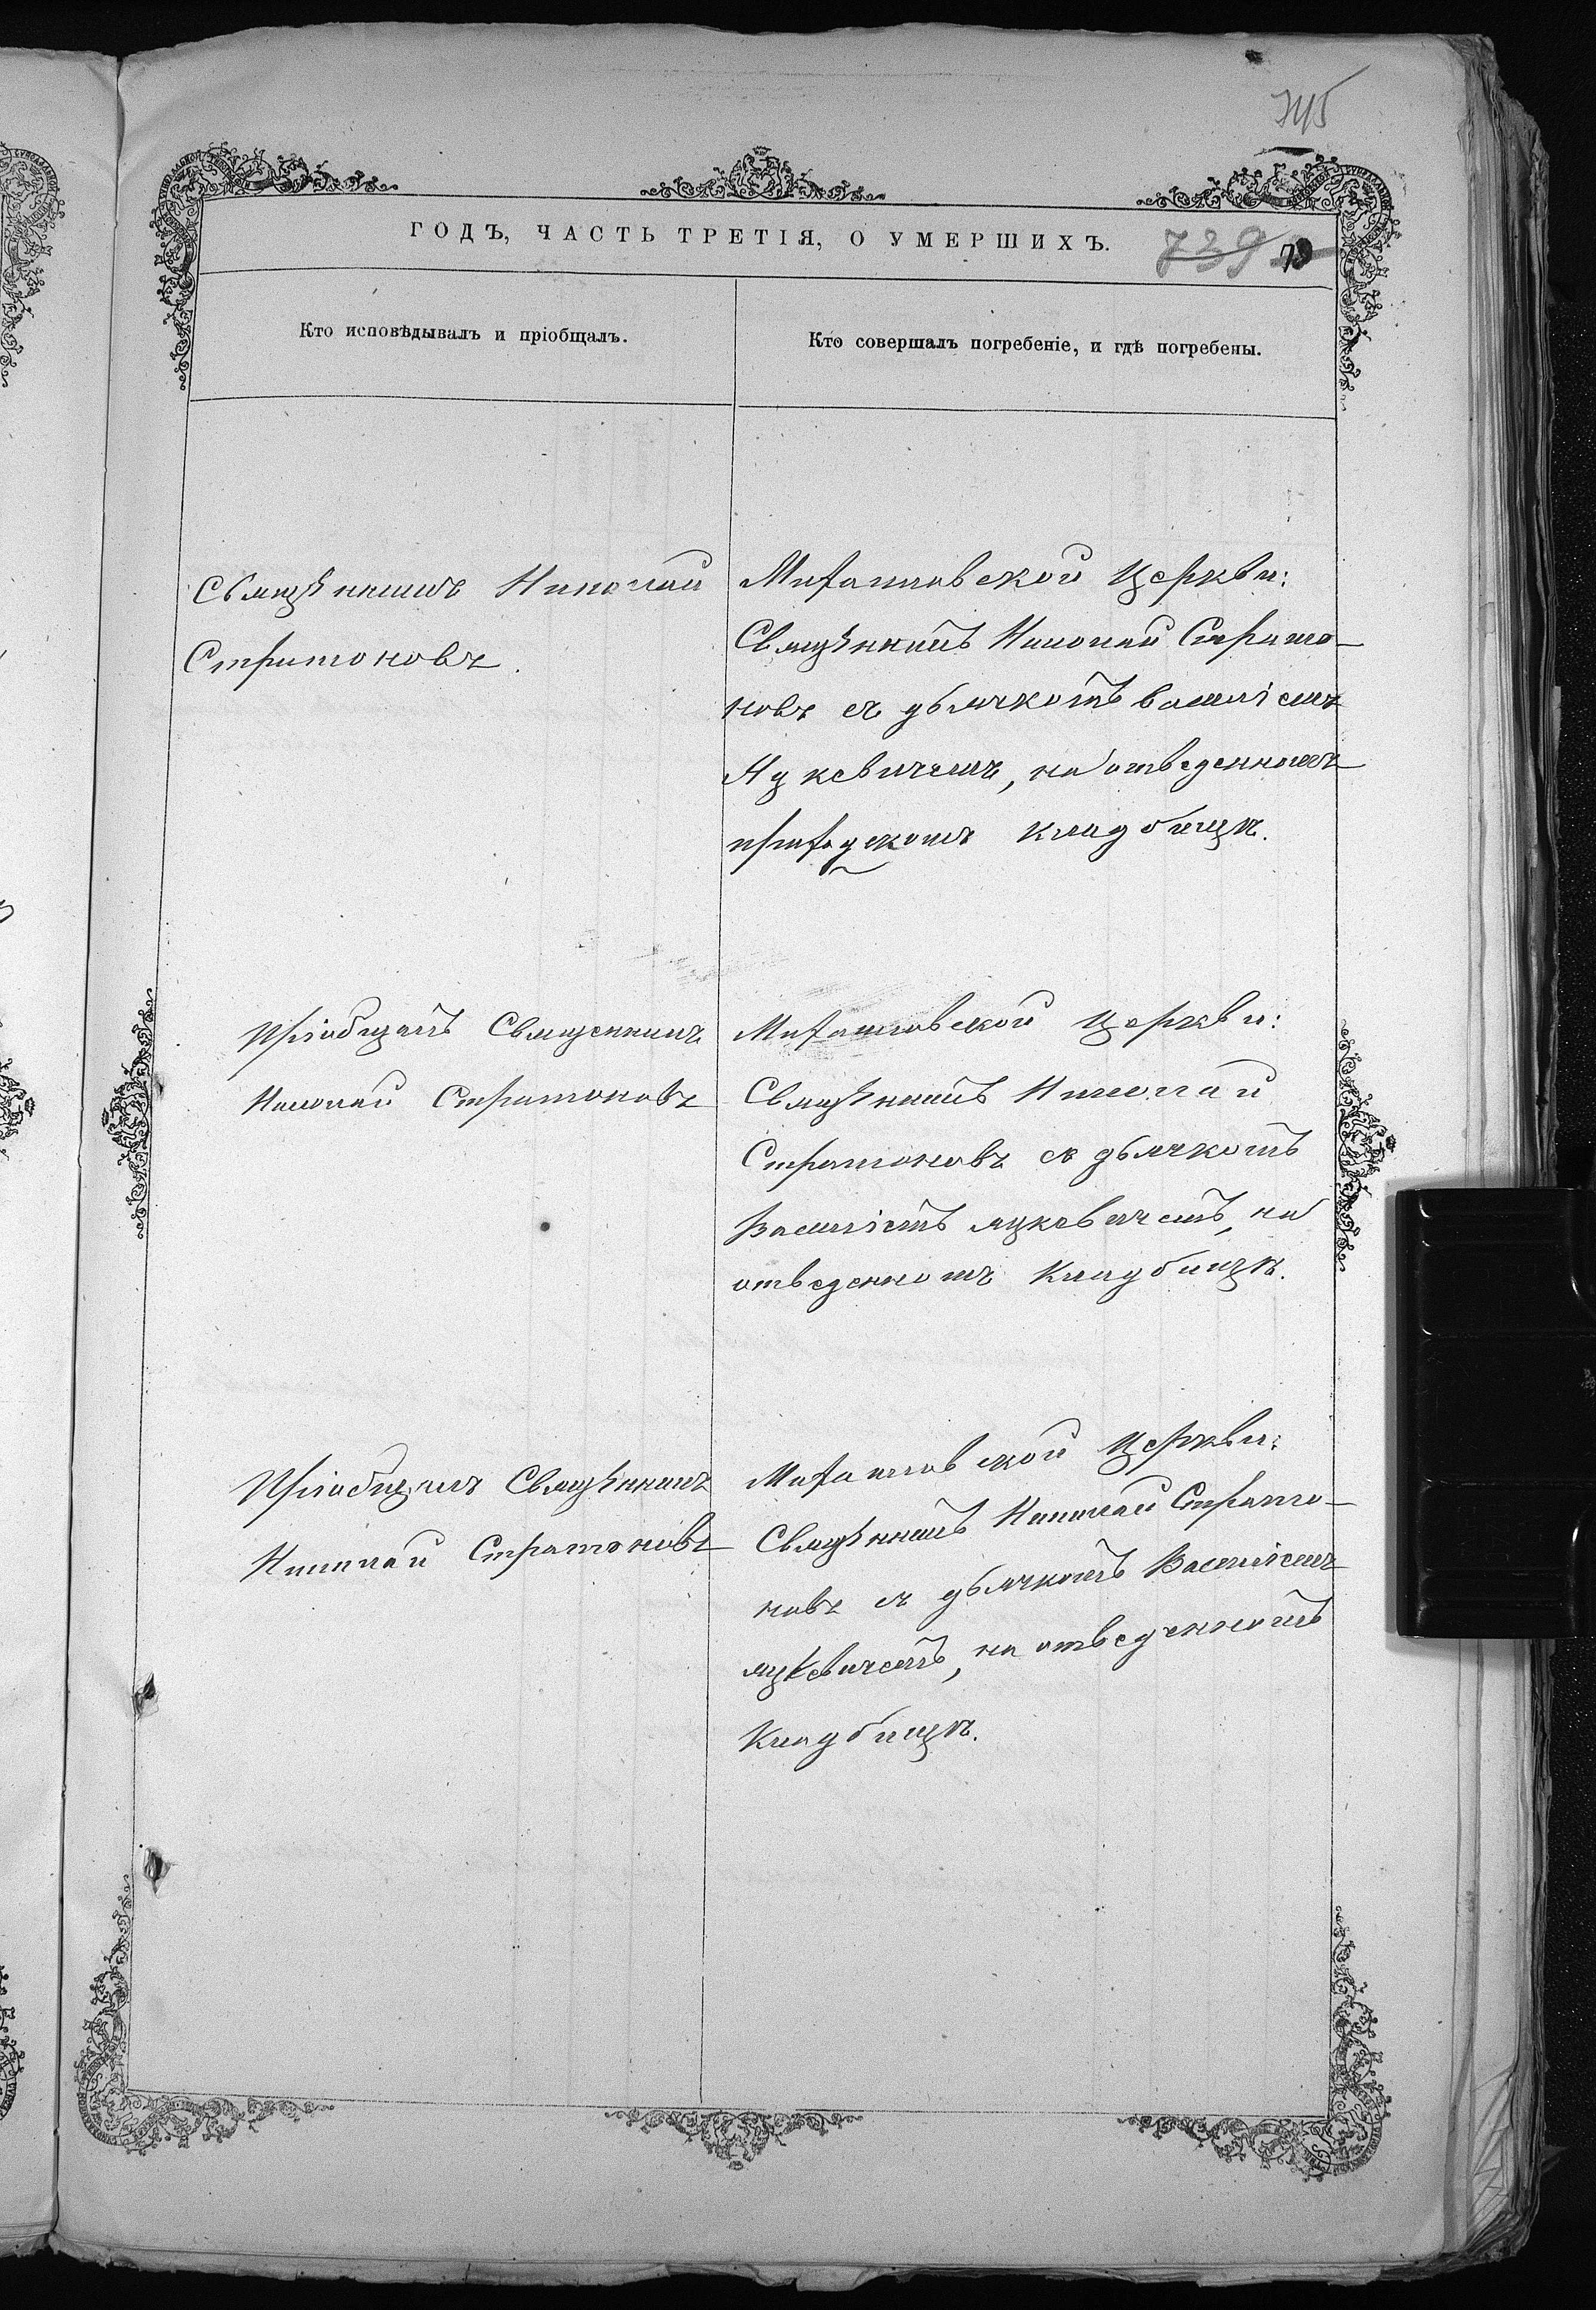 745
ГОДЪ, ЧАСТЬ ТРЕТІЯ, О УМЕРШИХЪ.
739 79
Кто исповѣдывалъ и пріобщалъ.
Кто совершалъ погребеніе, и гдѣ погребены.
Священникъ Николай
Стратоновъ.
Михайловской Церкви:
Священникъ Николай Страто-
новъ съ дьячкомъ Василіемъ
Яцкевичемъ, на отведенномъ
приходскомъ кладбищѣ.
Пріобщалъ Священникъ
Николай Стратоновъ
Михайловской Церкви:
Священникъ Николай
Стратоновъ съ дьячкомъ
Василіемъ Яцкевичемъ, на
отведенномъ кладбищѣ.
Пріобщалъ Священникъ
Николай Стратоновъ
Михайловской Церкви:
Священникъ Николай Страто-
новъ съ дьячкомъ Василіемъ
Яцкевичемъ, на отведенномъ
кладбищѣ.